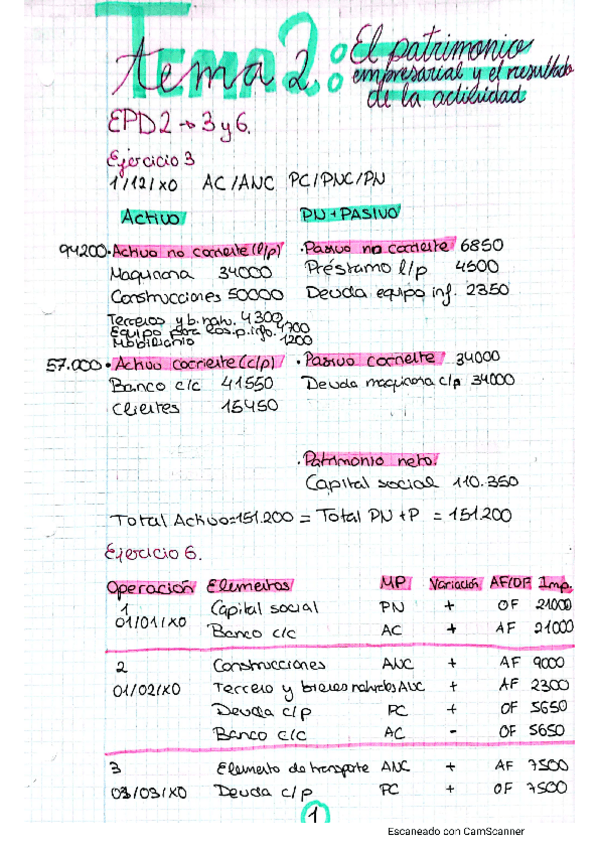 Tema 2:
tema 2. El patrimonio
empresarial y el resultado
de la actividad
EPD2 → 3 y 6.
Ejercicio 3
1/12/X0 AC/ANC PC/PNC/PN
Activo PN+PASIVO
94200 · Activo no corriente (l/p) · Pasivo no corriente 6850
Maquinaria 34000 Préstamo l/p 4500
Construcciones 50000 Deuda equipo inf. 2350
Terrenos y b. natu. 4300
Equipo para los.p.info. 4700
Mobiliario 1200
57.000 · Activo corriente (c/p) · Pasivo corriente 34000
Banco c/c 41550 Deuda maquinaria c/p 34000
Clientes 15450
· Patrimonio neto.
Capital social 110.350
Total Activo=151.200 = Total PN+P = 151.200
Ejercicio 6.
Operación Elementos MP Variación AF/OF Imp.
1 Capital social PN + OF 21000
01/01/X0 Banco c/c AC + AF 21000
2 Construcciones ANC + AF 9000
01/02/X0 Terreno y bienes naturales ANC + AF 2300
Deuda c/p PC + OF 5650
Banco c/c AC - OF 5650
3 Elemento de transporte ANC + AF 7500
03/03/X0 Deuda c/p PC + OF 7500
1
Escaneado con CamScanner